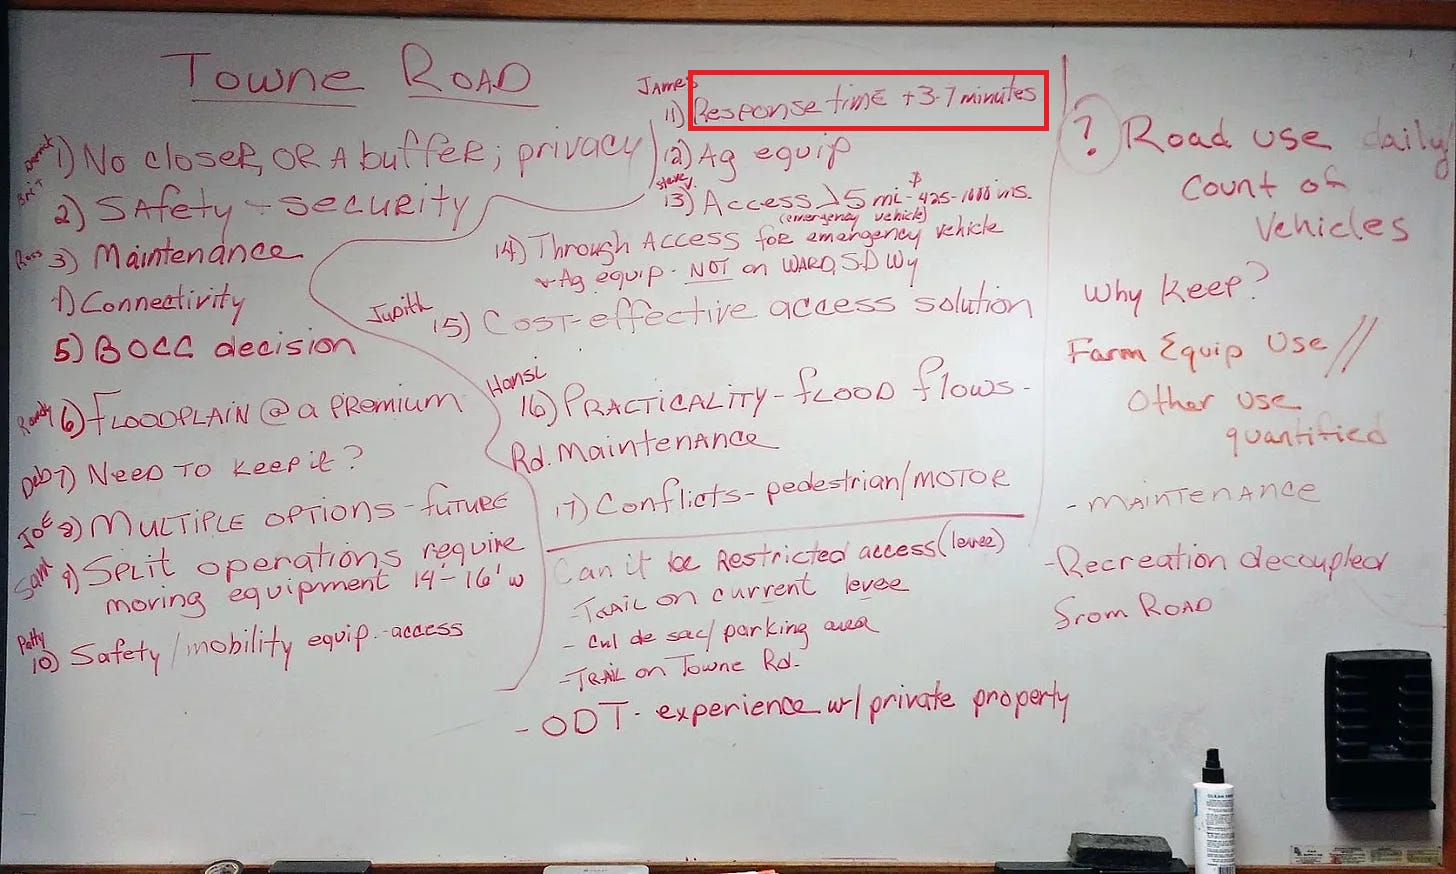 TOWNE ROAD
1) No closer, OR A buffer; privacy
Brit
2) SAfety - security
Ross 3) Maintenance
1) Connectivity
5) BOCC decision
Randy 6) FLOODPLAIN @ a PREMIUM
Deb 7) NEED TO keep it?
JOE 8) MULTIPLE OPTIONS - future
Sam 9) Split operations require
moving equipment 14'-16' w
Patty
10) Safety/mobility equip.-access
James
11) Response time +3-7 minutes
12) Ag equip
Steve
13) Access 5 mi - $425-1000 ins.
(emergency vehicle)
14) Through Access for emergency vehicle
Ag equip - NOT on WARD, S.D Wy
Judith
15) Cost-effective access solution
Hansi
16) PRACTICALITY - fLOOD flows -
Rd. Maintenance
17) Conflicts - pedestrian/MOTOR
Can it be Restricted access (levee)
- TRAIL on current levee
- Cul de sac/parking area
- TRAIL on Towne Rd.
- ODT - experience w/ private property
? Road use daily
Count of
Vehicles
Why keep?
Farm Equip Use //
Other use
quantified
- MAINTENANCE
- Recreation decoupled
from ROAD